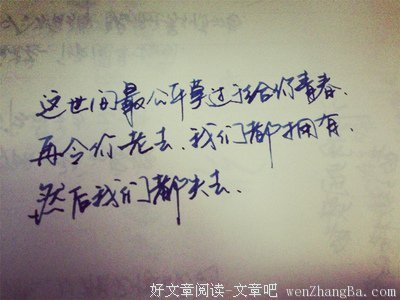 这世间最公平莫过于给你青春.
再令你老去.我们都拥有.
然后我们都失去.
好文章阅读-文章吧 wenZhangBa.com